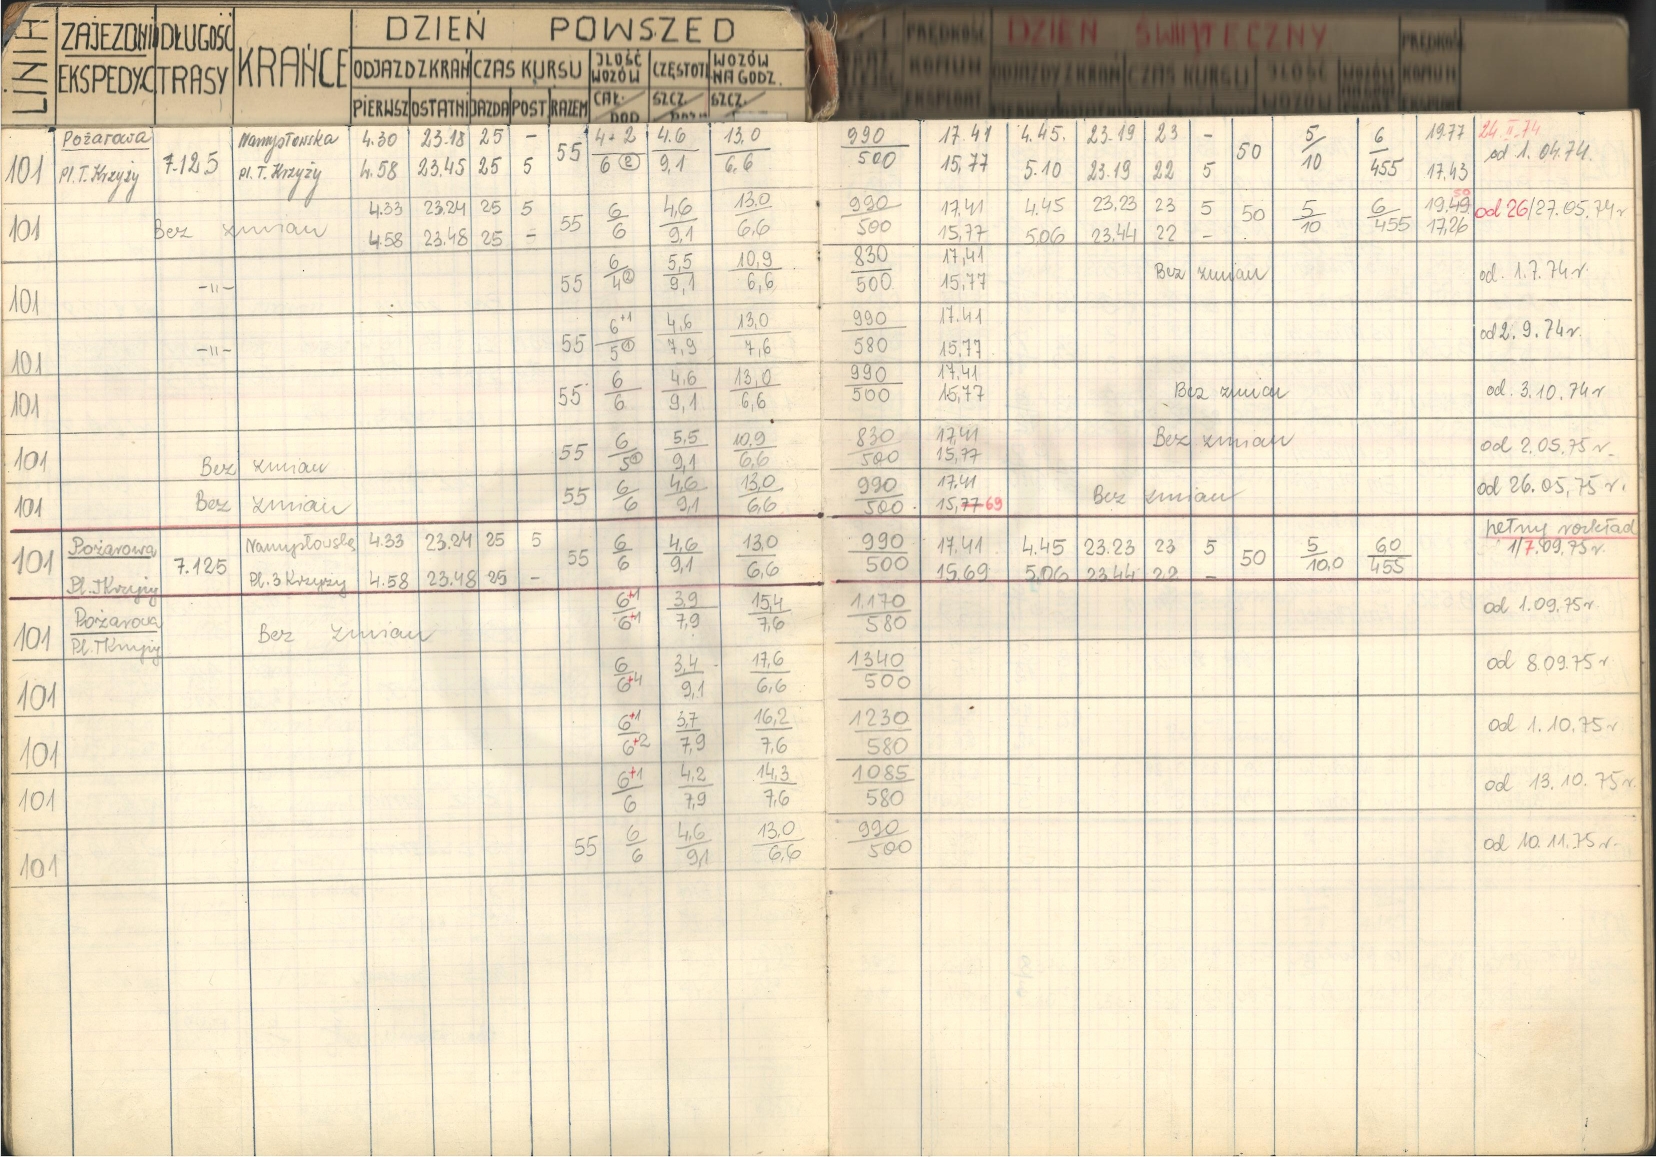 DZIEŃ POWSZED
DZIEŃ ŚWIĄTECZNY
LINIA ZAJEZDNI DŁUGOŚĆ KRAŃCE ODJAZD Z KRAŃ CZAS KURSU ILOŚĆ WOZÓW CZĘSTOTL WOZÓW NA GODZ.
EKSPEDYC TRASY PIERWSZ OSTATNI JAZDA POST RAZEM CAŁ. SZCZ. SZCZ.
PRĘDKOŚĆ KOMUN EKSPLOAT ODJAZDY Z KRAŃ CZAS KURSU ILOŚĆ WOZÓW PRĘDKOŚ KOMUN
Pożarowa Namysłowska 4.30 23.18 25 – 4+2 4.6 13,0 990 17.41 4.45. 23.19 23 – 5/ 6 19.77 24.II.74
101 7.125 55 50 od 1.04.74.
Pl.T.Krzyży Pl.T.Krzyży 4.58 23.45 25 5 6② 9,1 6,6 500 15,77 5.10 23.19 22 5 10 455 17,43
4.33 23.24 25 5 6 4,6 13.0 990 17.41 4.45 23.23 23 5 5 6 19,49 50
101 Bez zmian 55 50 od 26/27.05.74r
4.58 23.48 25 – 6 9,1 6,6 500 15,77 5.06 23.44 22 – 10 455 17,26
6 5,5 10,9 830 17,41
101 –"– 55 Bez zmian od. 1.7.74r.
4② 9,1 6,6 500 15,77
6+1 4,6 13,0 990 17.41
101 –"– 55 od 2.9.74r.
5① 7,9 7,6 580 15,77
6 4,6 13,0 990 17,41
101 55 Bez zmian od. 3.10.74r
6 9,1 6,6 500 15,77
6 5,5 10,9 830 17,41
101 Bez zmian 55 Bez zmian od 2.05.75r.
5① 9,1 6,6 500 15,77
6 4,6 13,0 990 17,41
101 Bez zmian 55 Bez zmian od 26.05,75r.
6 9,1 6,6 500 15,77 69
Pożarowa Namysłowska 4.33 23.24 25 5 6 4,6 13,0 990 17.41 4.45 23.23 23 5 5 60 pełny rozkład
101 7.125 55 50 1/7.09.75r.
Pl.TKrzyży Pl.3 Krzyży 4.58 23.48 25 – 6 9,1 6,6 500 15.69 5,06 23.44 22 – 10,0 455
Pożarowa 6+1 3,9 15,4 1.170
101 Bez zmian od 1.09.75r
Pl.TKrzyży 6+1 7,9 7,6 580
6 3,4 17,6 1340
101 od 8.09.75r
6+4 9,1 6,6 500
6+1 3,7 16,2 1230
101 od 1.10,75r.
6+2 7,9 7,6 580
6+1 4,2 14,3 1085
101 od 13.10.75r.
6 7,9 7,6 580
6 4,6 13,0 990
101 55 od 10.11.75r.
6 9,1 6,6 500